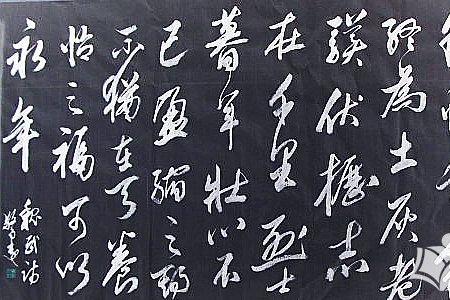 終為土灰老
驥伏櫪志
在千里烈士
暮年壯心不
已盈縮之期
不在天養
怡之福可以
永年
魏武詩